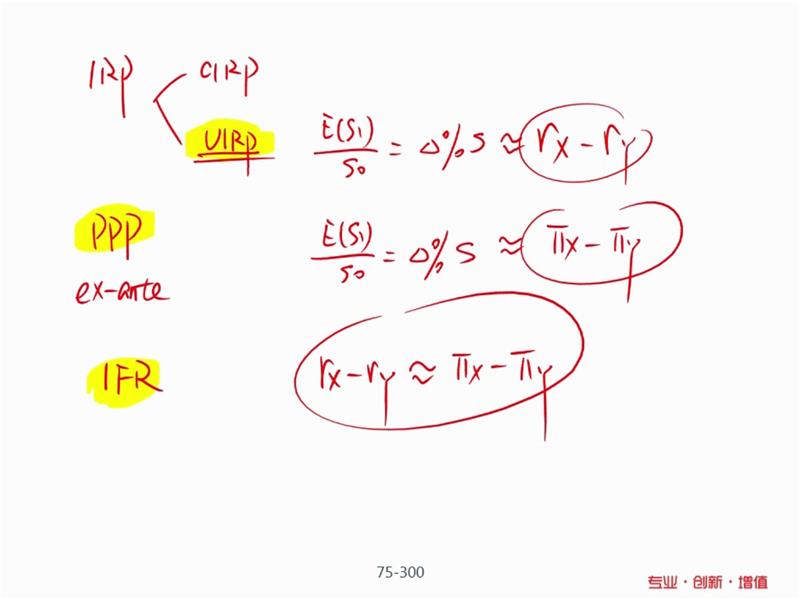 IRP
CIRP
UIRP E(S₁)/S₀ = Δ%S ≈ rx - ry
PPP E(S₁)/S₀ = Δ%S ≈ πx - πy
ex-ante
IFR rx - ry ≈ πx - πy
75-300
专业·创新·增值